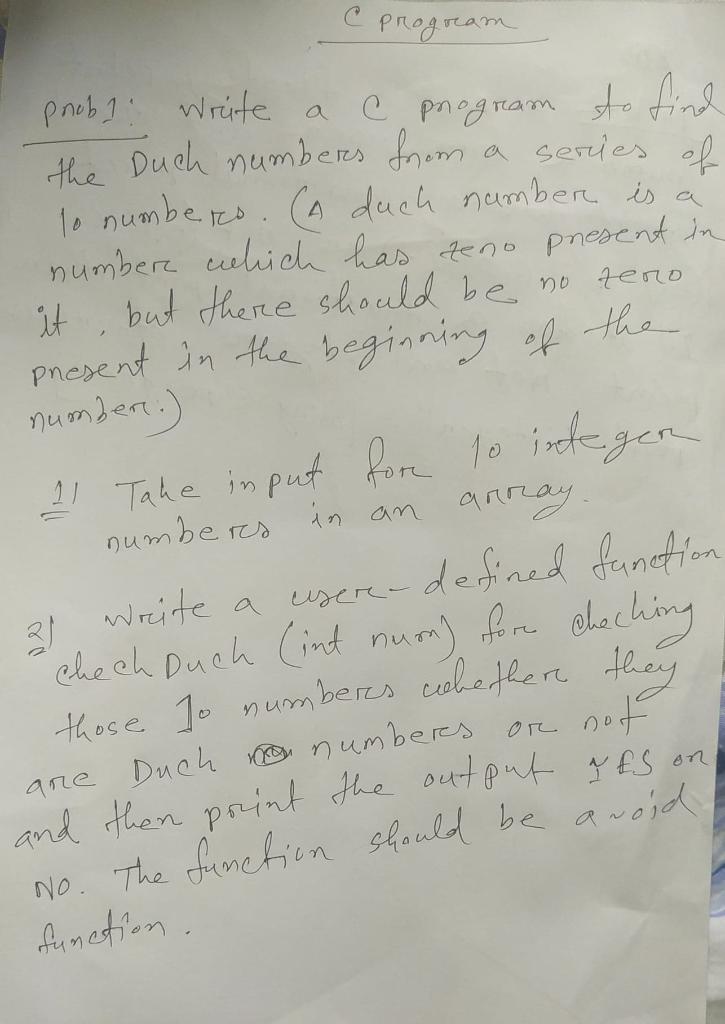 C program
prob 1: Write a C program to find
the Duck numbers from a series of
10 numbers. (A duck number is a
number which has zero present in
it, but there should be no zero
present in the beginning of the
number.)
1) Take input for 10 integer
numbers in an array.
2) Write a user-defined function
checkDuck (int num) for checking
those 10 numbers whether they
are Duck numbers or not
and then print the output YES or
NO. The function should be a void
function.